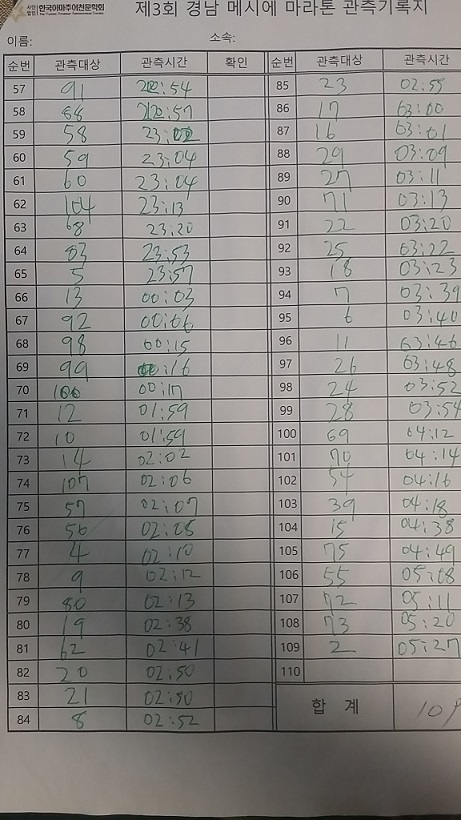 사단법인 한국아마추어천문학회
제3회 경남 메시에 마라톤 관측기록지
이름: 소속:
순번 관측대상 관측시간 확인 순번 관측대상 관측시간
57 91 22:54 85 23 02:55
58 88 22:57 86 17 03:00
59 58 23:02 87 16 03:01
60 59 23:04 88 29 03:09
61 60 23:04 89 27 03:11
62 104 23:13 90 71 03:13
63 68 23:20 91 22 03:20
64 83 23:53 92 25 03:22
65 5 23:57 93 18 03:23
66 13 00:03 94 7 03:39
67 92 00:06 95 6 03:40
68 98 00:15 96 11 03:46
69 99 00:16 97 26 03:48
70 100 00:17 98 24 03:52
71 12 01:59 99 28 03:54
72 10 01:59 100 69 04:12
73 14 02:02 101 70 04:14
74 107 02:06 102 54 04:16
75 57 02:07 103 39 04:18
76 56 02:08 104 15 04:38
77 4 02:10 105 75 04:49
78 9 02:12 106 55 05:08
79 80 02:13 107 72 05:11
80 19 02:38 108 73 05:20
81 62 02:41 109 2 05:27
82 20 02:50 110
83 21 02:50 합 계 109
84 8 02:52